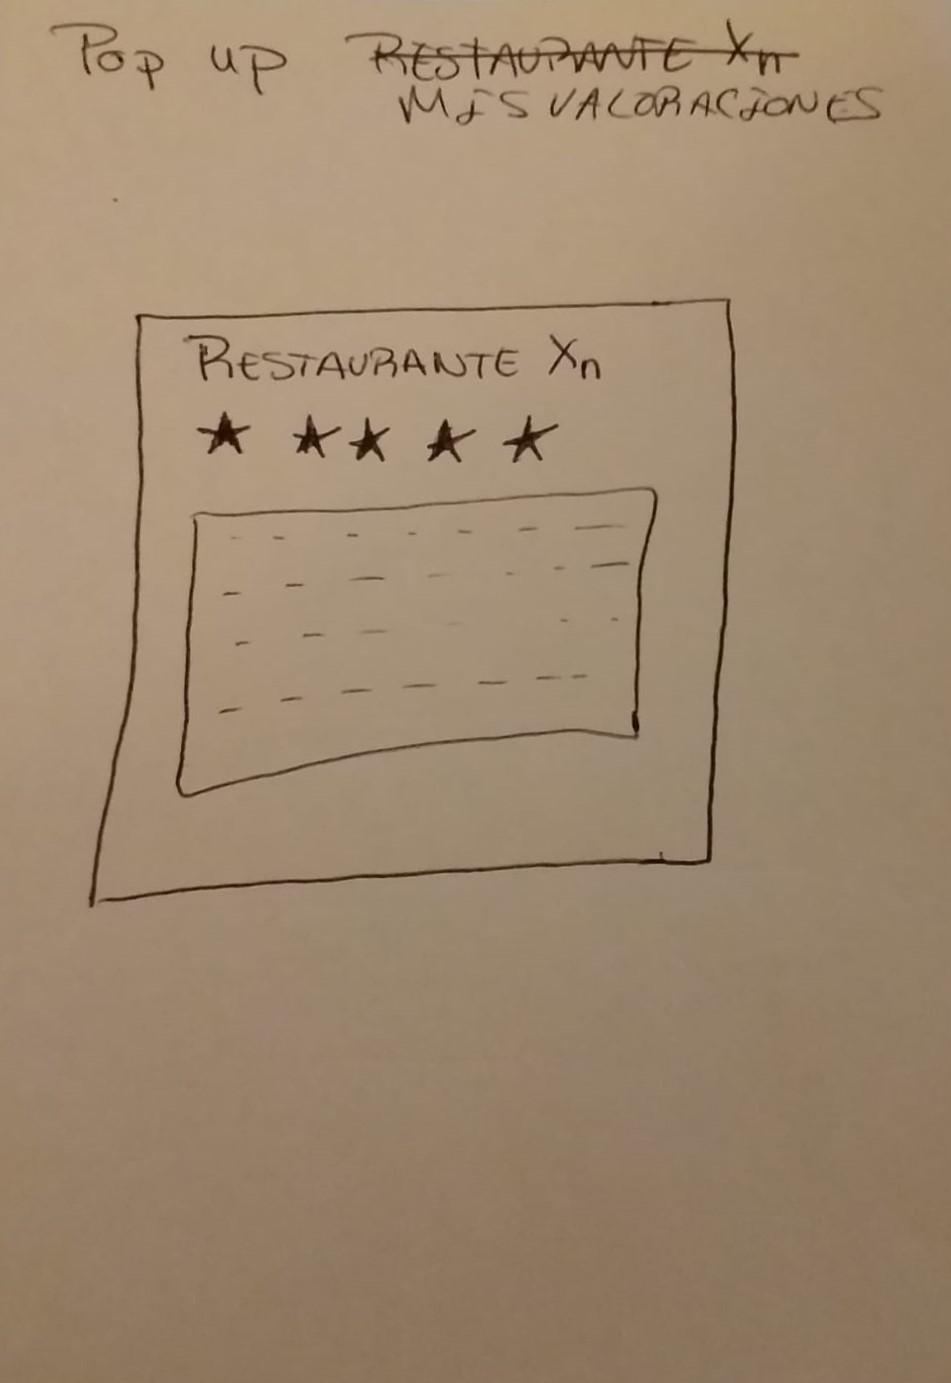 Pop up RESTAURANTE Xn
MIS VALORACIONES
RESTAURANTE Xn